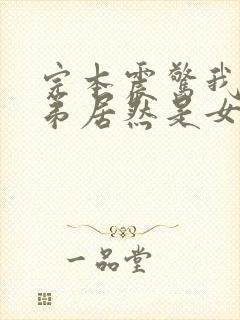 完本震驚我
弟居然是女
一品堂